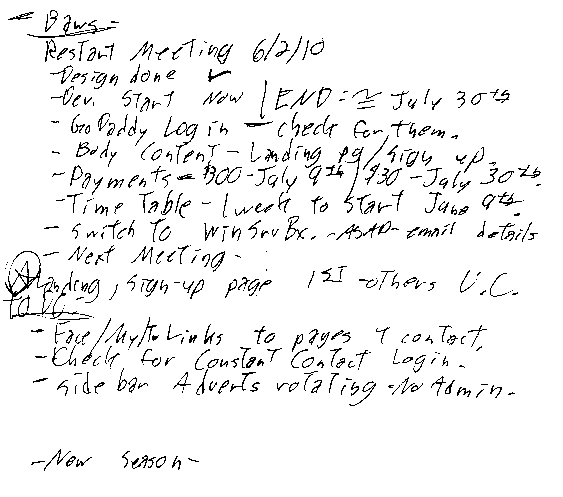 - Baws -
Restart Meeting 6/2/10
- Design done ✓
- Dev. Start Now | END = ≅ July 30th
- GoDaddy Log in - check for them.
- Body Content - Landing pg / sign up.
- Payments = $300 - July 9th / $30 - July 30th.
- Time Table - 1 week to start June 9th.
- Switch to WinSrvBx. - ASAP - email details
- Next Meeting -
Landing, sign-up page 1st - others U.C.
TO DO
- Face/My/Tw Links to pages & contact.
- Check for Constant Contact Login.
- Side bar Adverts rotating - No Admin.
- New Season -